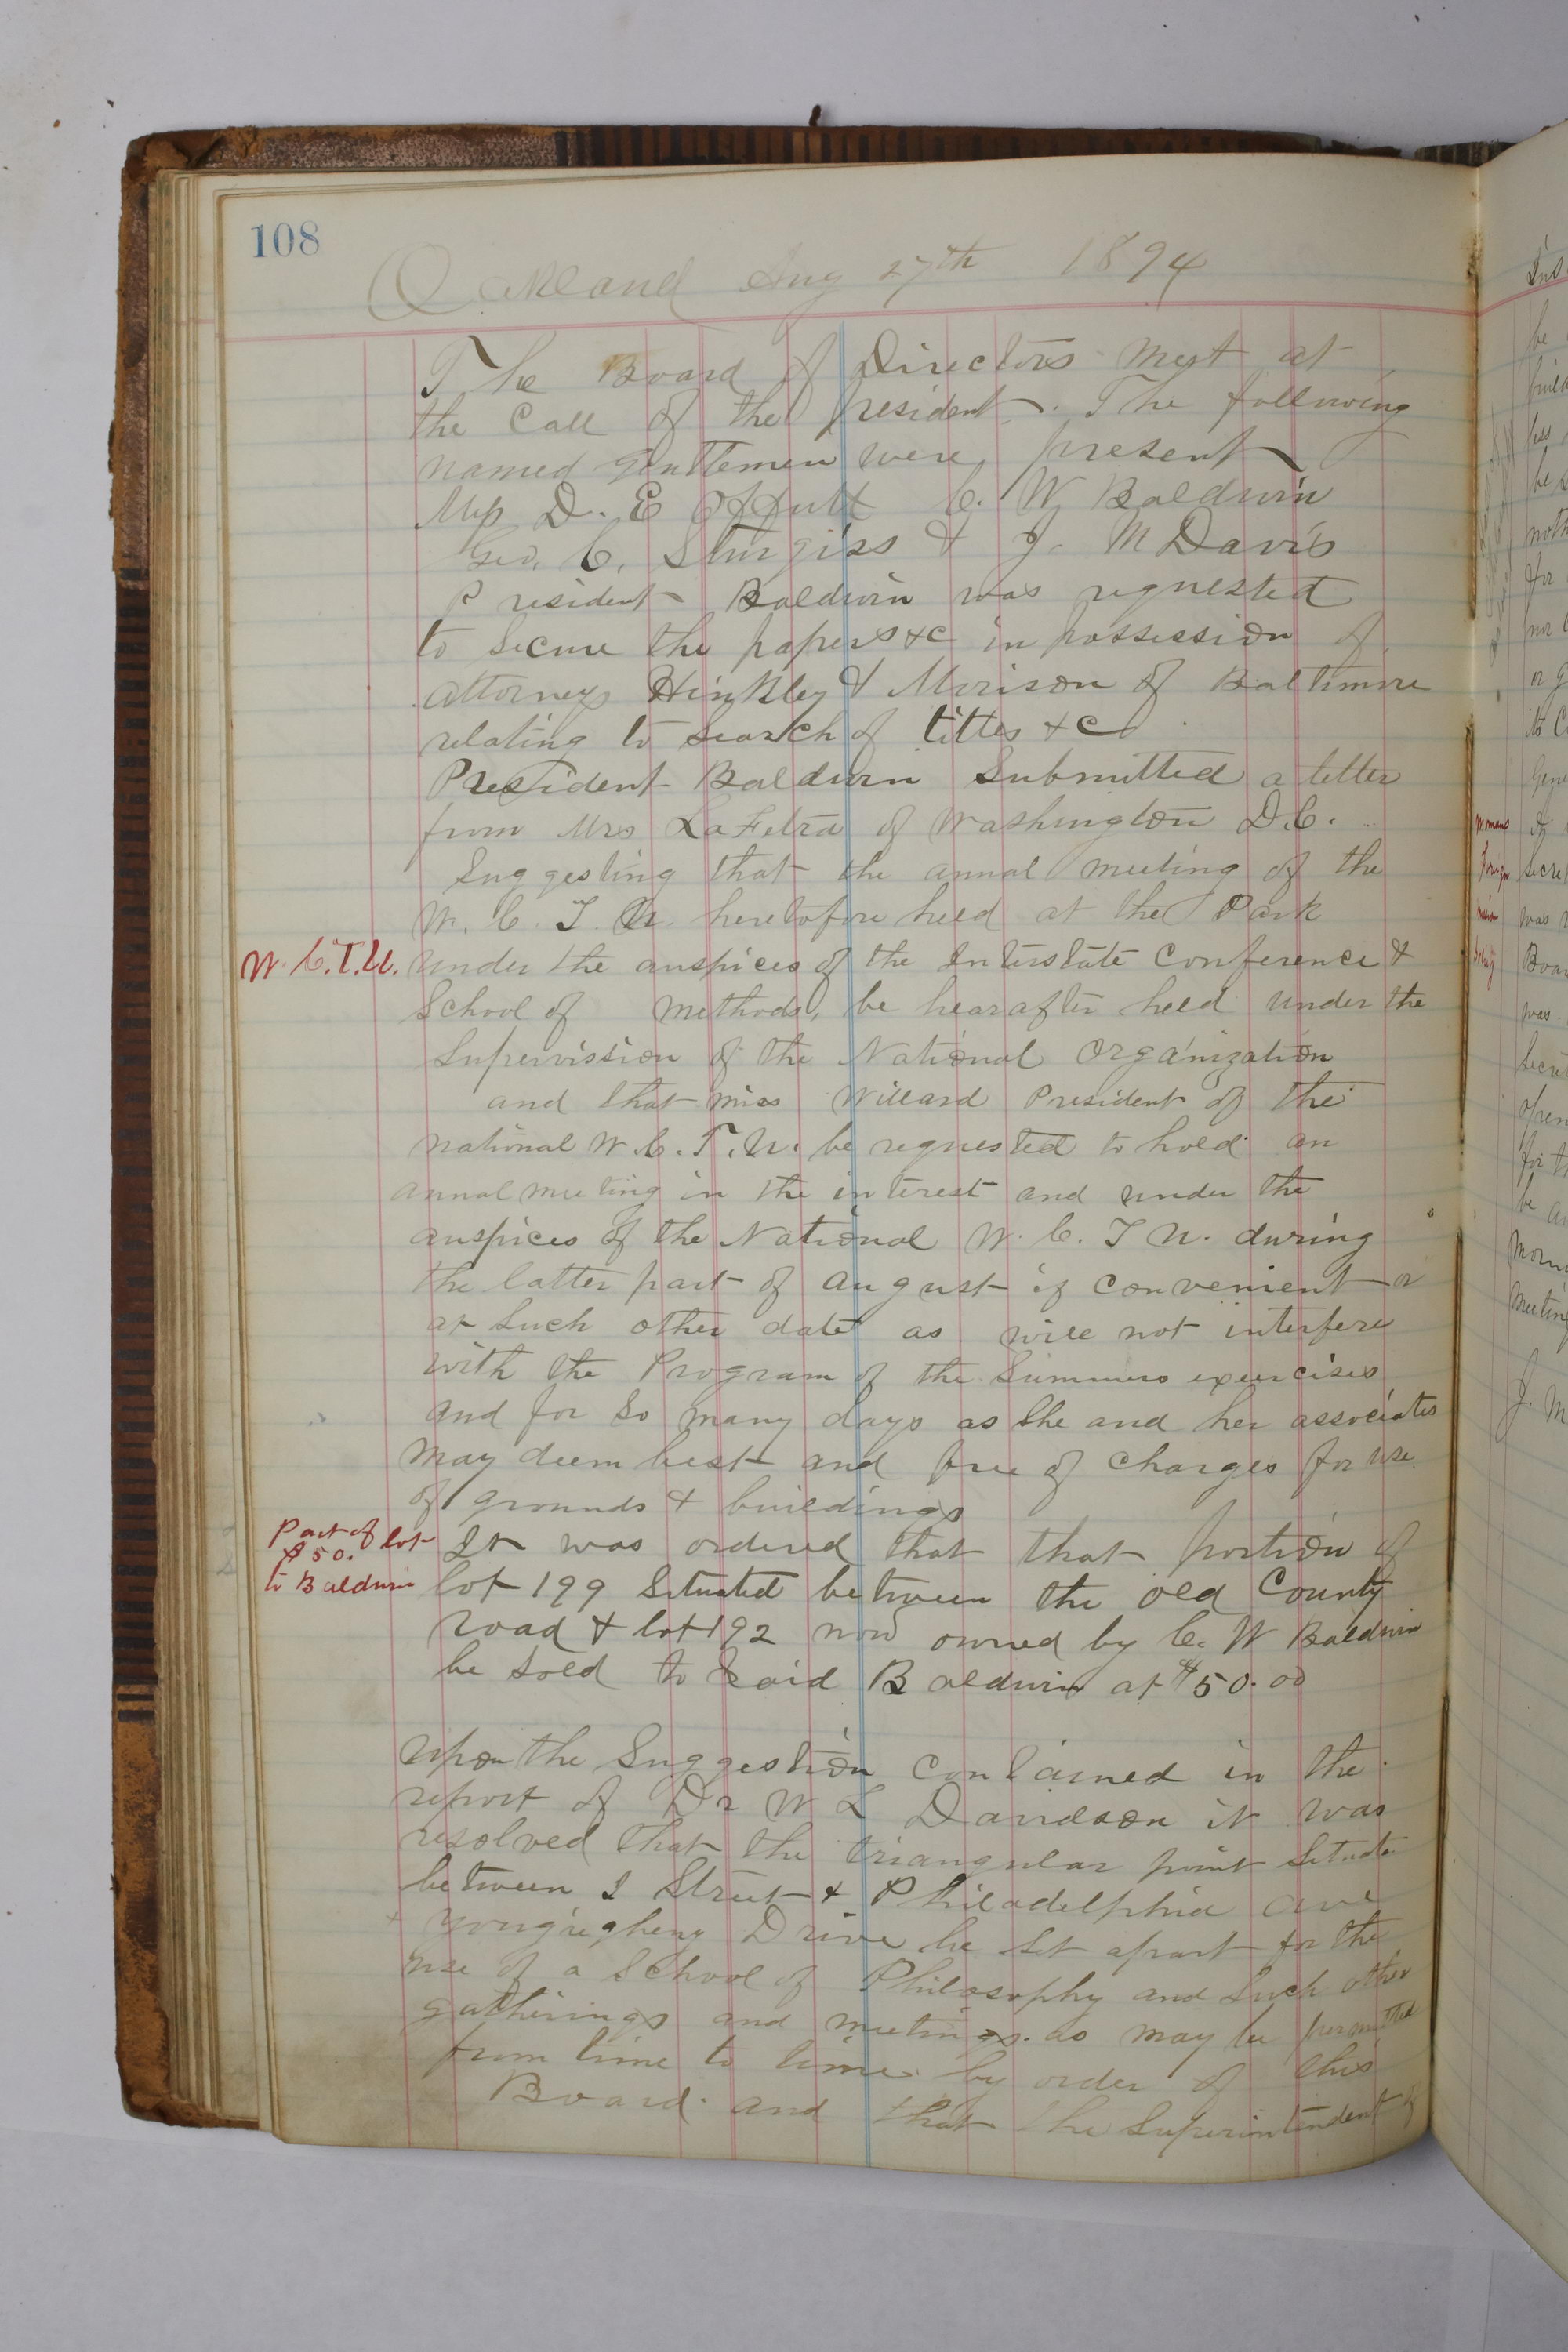 108
Oakland Aug 27th 1894
The Board of Directors met at
the Call of the President. The following
named gentlemen were present
D. E Offutt C. W Baldwin
Geo. C. Sturgiss & J. M Davis
President Baldwin was requested
to secure the papers &c in possession of
attorneys Hinkley & Morison of Baltimore
relating to search of titles &c
President Baldwin Submitted a letter
from Mrs LaFetra of Washington D.C.
Suggesting that the annual meeting of the
W. C. T. U. heretofore held at the Park
W. C. T. U. under the auspices of the Interstate Conference &
School of methods, be hearafter held under the
Supervission of the National Organization
and that miss Willard President of the
national W. C. T. U. be requested to hold an
annual meeting in the interest and under the
auspices of the National W. C. T U. during
the latter part of august if convenient or
at Such other date as will not interfere
with the Program of the Summers exercises
and for so many days as She and her associates
may deem best and free of charges for use
of grounds & buildings
Part of lot
$50.
to Baldwin
It was ordered that that portion of
lot 199 Situated between the old County
road & lot 192 now owned by C. W Baldwin
be sold to Said Baldwin at $50.00
upon the Suggestion contained in the
report of Dr W L Davidson it was
resolved that the triangular point Situate
between I Street & Philadelphia ave
& Yougiegheny Drive be set apart for the
use of a School of Philosophy and Such other
gatherings and meetings as may be permitted
from time to time by order of this
Board and that the Superintendent of